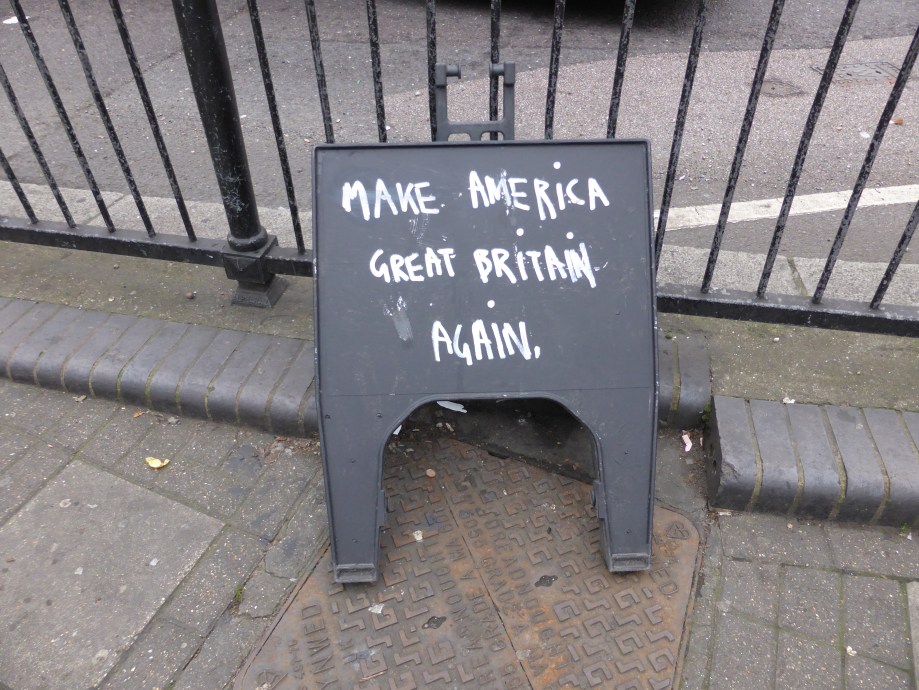 MAKE AMERiCA
GREAT BRiTAiN
AGAiN.